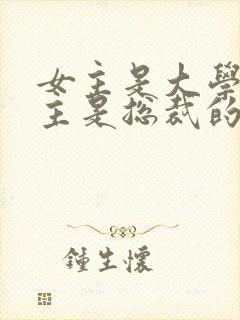 女主是大學
主是总裁的
鍾生懷